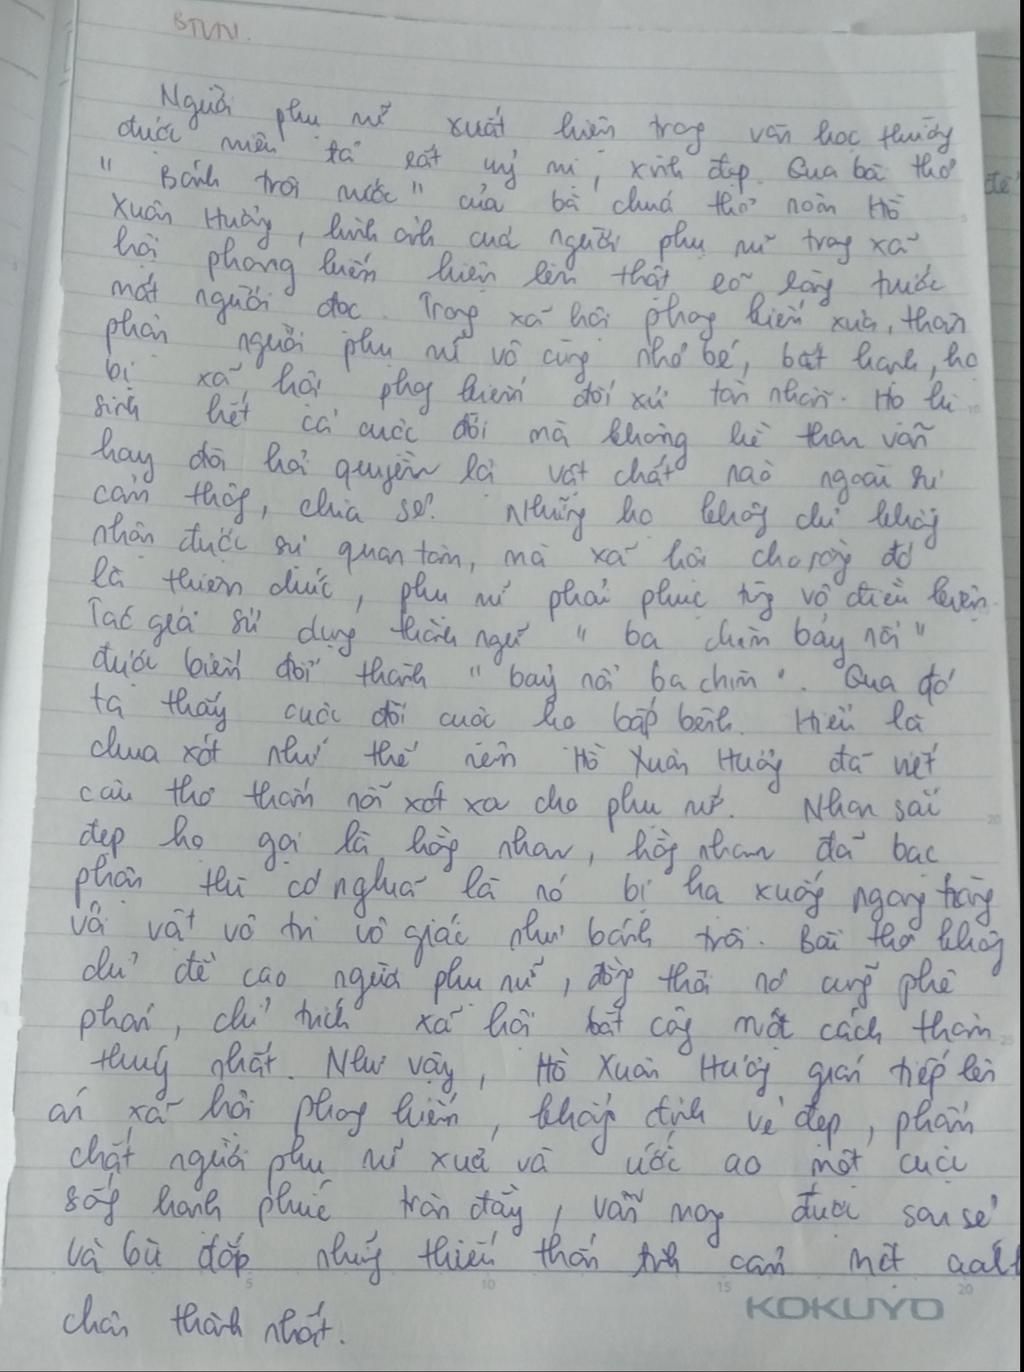 BTVN.
Người phụ nữ xuất hiện trong văn học thường
được miêu tả rất mỹ mi, xinh đẹp. Qua bài thơ
" Bánh trôi nước " của bà chúa thơ nôm Hồ
Xuân Hương, hình ảnh của người phụ nữ trong xã
hội phong kiến hiện lên thật rõ ràng trước
mắt người đọc. Trong xã hội phong kiến xưa, thân
phận người phụ nữ vô cùng nhỏ bé, bất hạnh, họ
bị xã hội phong kiến đối xử tàn nhẫn. Họ hi
sinh hết cả cuộc đời mà không hề than vãn
hay đòi hỏi quyền là vật chất nào ngoài sự
cảm thông, chia sẻ. Nhưng họ không chỉ không
nhận được sự quan tâm, mà xã hội cho rằng đó
là thiên chức, phụ nữ phải phục tùng vô điều kiện.
Tác giả sử dụng thành ngữ " ba chìm bảy nổi "
được biến đổi thành " bảy nổi ba chìm ". Qua đó
ta thấy cuộc đời cuộc họ bấp bênh. Hiểu là
chua xót như thế nên Hồ Xuân Hương đã viết
câu thơ thấm nỗi xót xa cho phụ nữ. Nhan sắc
đẹp họ gọi là hồng nhan, hồng nhan đã bạc
phận thì có nghĩa là nó bị hạ xuống ngang hàng
với vật vô tri vô giác như bánh trôi. Bài thơ không
chỉ đề cao người phụ nữ, đồng thời nó cũng phê
phán, chỉ trích xã hội bất công một cách thâm
thúy nhất. Như vậy, Hồ Xuân Hương gián tiếp lên
án xã hội phong kiến, khẳng định vẻ đẹp, phẩm
chất người phụ nữ xưa và ước ao một cuộc
sống hạnh phúc tràn đầy, vẫn may được san sẻ
và bù đắp những thiếu thốn tình cảm một cách
chân thành nhất.
5 10 15 20
KOKUYO